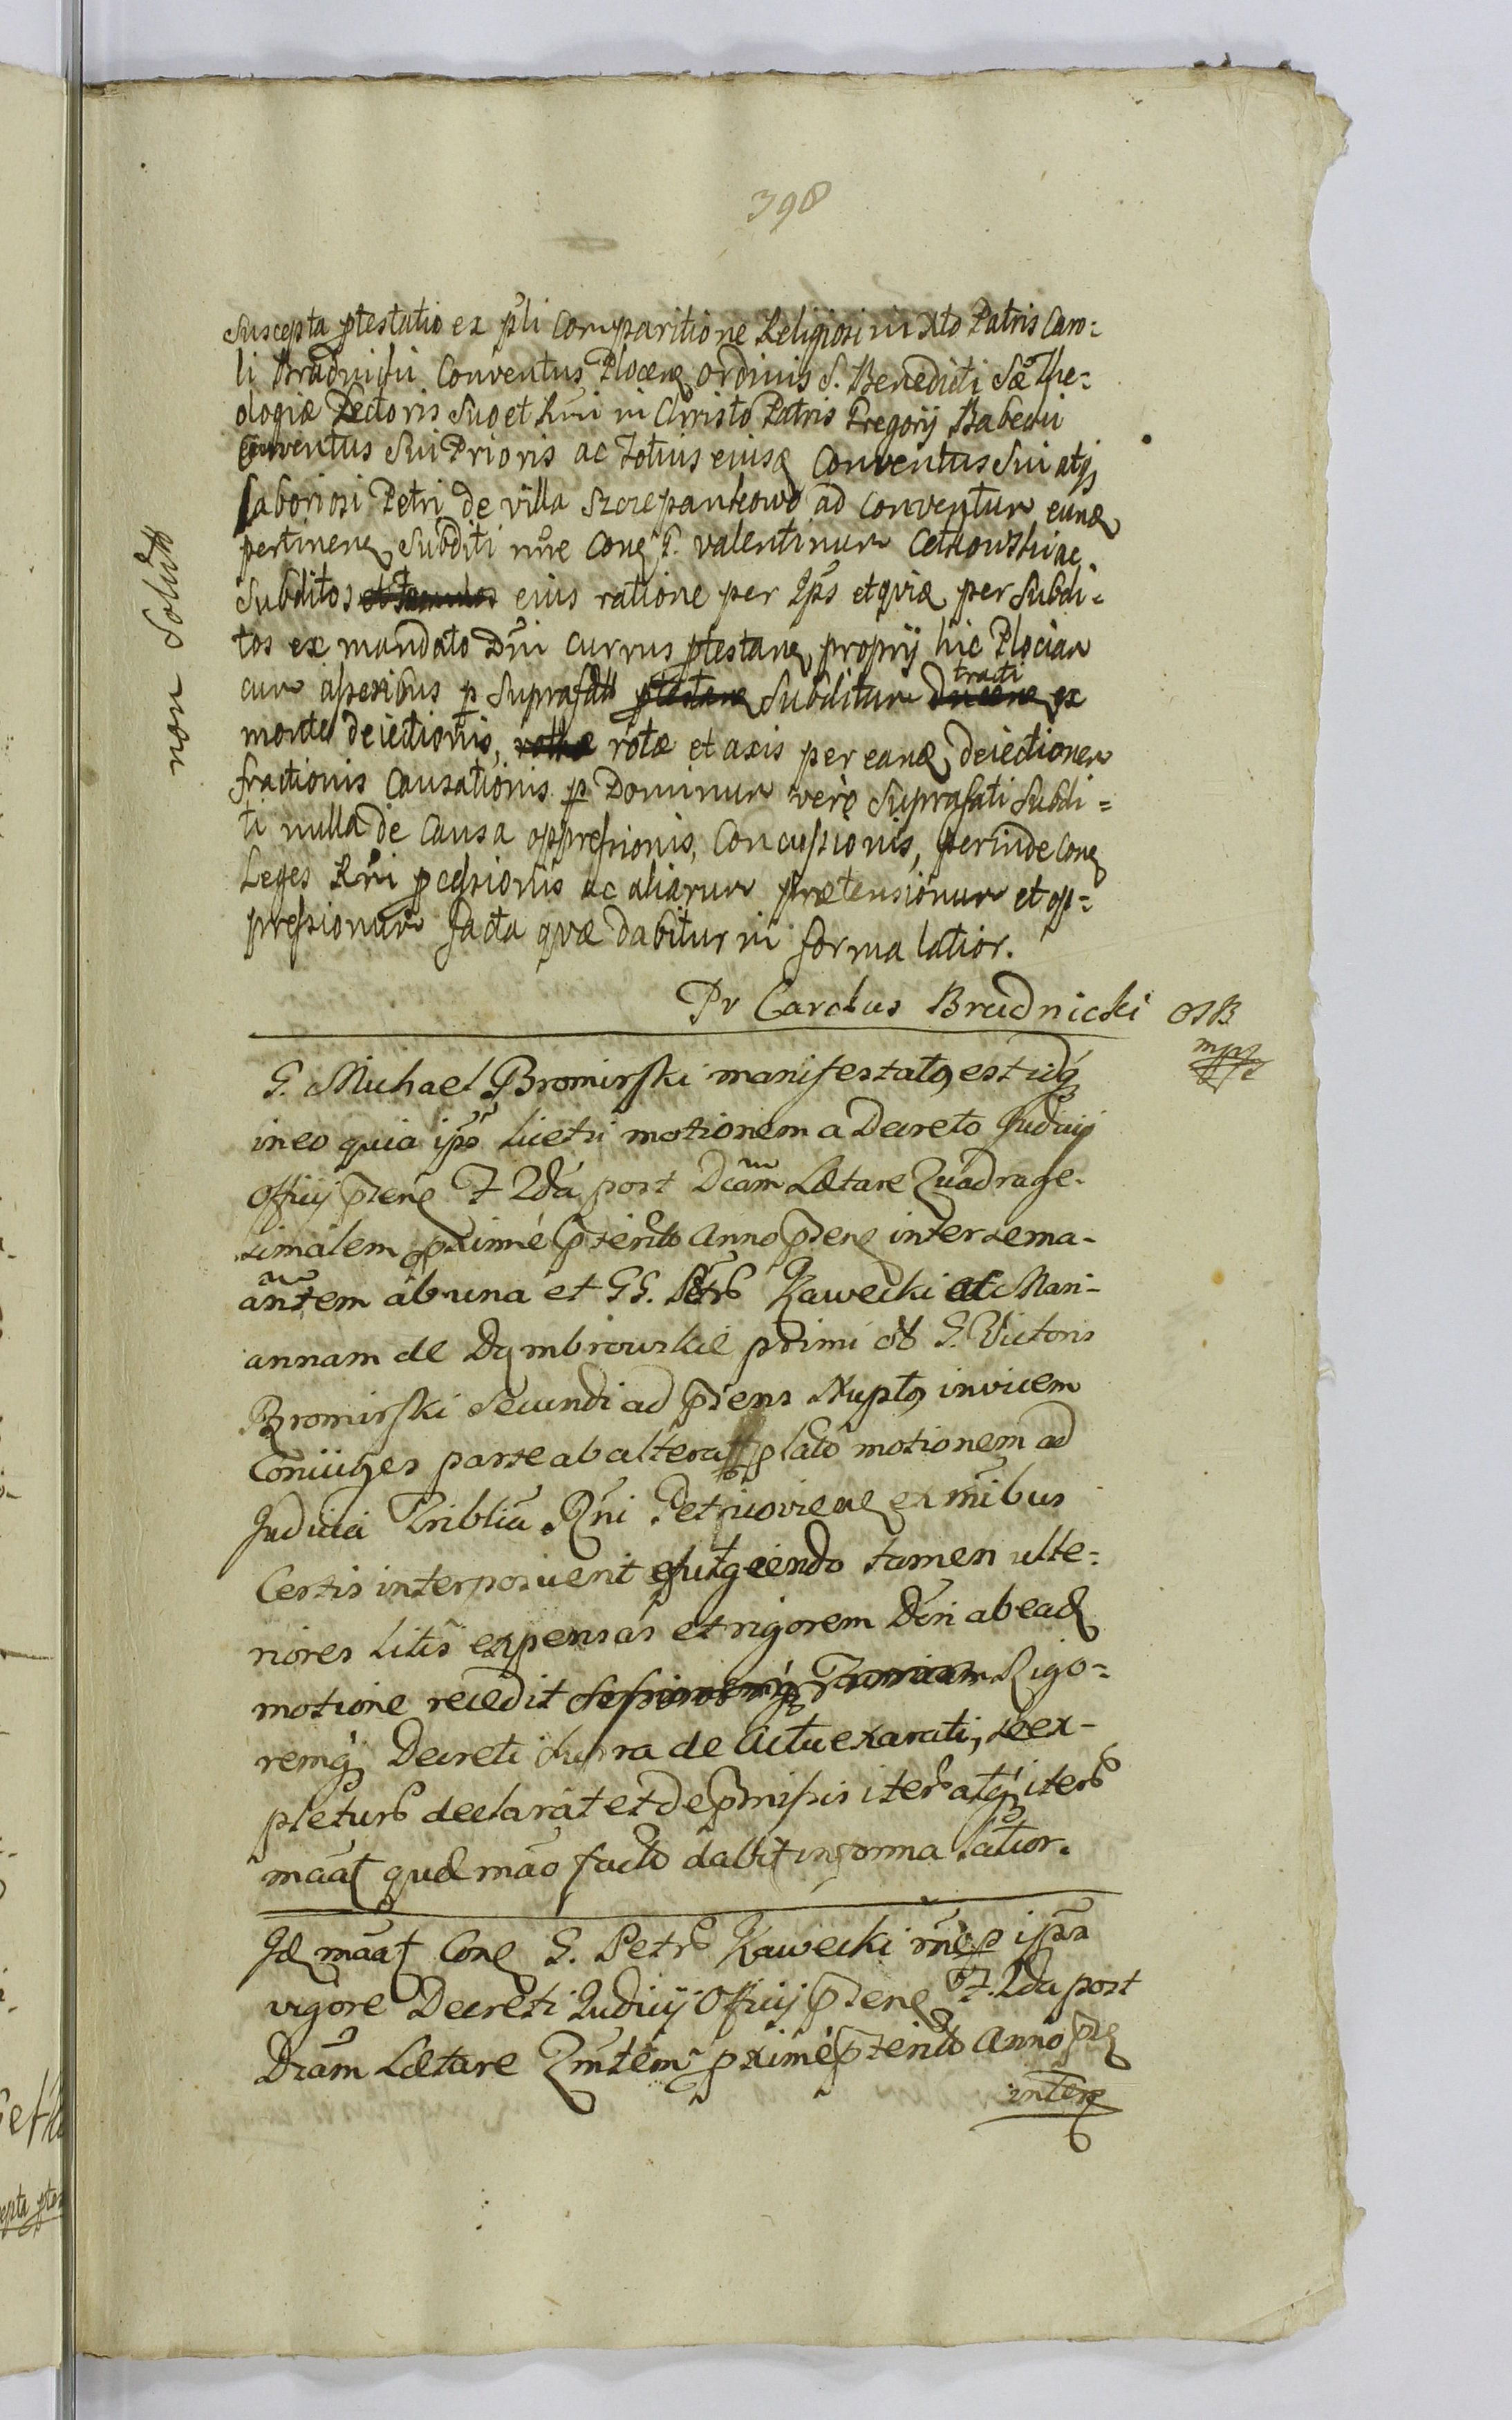 398
Suscepta ptestatio ex pli Comparitione Religiosi in Xto Patris Caro-
li Brudnicki Conventus Plocen Ordinis S. Benedicti Sæ The-
ologiæ Lectoris Suo et Rni in Christo Patris Gregorij Babecki
Conventus Sui Prioris ac Totius eiusq Conventus Sui atq
Laboriosi Petri de villa Szczepankowo ad Conventum eund
pertinen Subditi nne Con G. Valentinum Cethowski ac
Subditos et famulos eius ratione per Ips et quid per Subdi-
tos ex mandato Dni currus ptestan proprij hic Plociam
cum asseribus p Suprafatt ptestan Subditum ducen tracti ex
monte deiectionis, rottæ rotæ et axis per eand deiectionem
fractionis Causationis p Dominum verò Suprafati Subdi-
ti nulla de Causa oppressionis, Concussionis, perinde Con
Leges Rni pcessionis ac aliarum prætensionum et op-
pressionum facta quæ dabitur in forma latior.
Pr Carolus Brudnicki OSB
mpp
non Soluto
G. Michael Bromirski manifestatq est idq
in eo quia ips licet motionem a Decreto Judicij
Officij psen F 2da post Dcam Lætare Quadrage-
simalem pximè pterito Anno psen inter sema-
antem ab una et GG. Petrb Kawecki ac Mari-
annam de Dąmbrowskie primi ob G. Victoris
Bromirski Secundi ad psens Nuptq invicem
Coniuges parte ab altera plato motionem ad
Judicia Triblia Rni Petricovien ex mibus
Certis interposuerit efugiendo tamen ulte-
riores Litis expensas et rigorem Dni ab ead
motione recedit Rigo-
remq Decreti Supra de Actu exarati, se ex-
pleturb declarat et de pmissis iterb atq iterb
maat qud mao facto dabit in forma latior.
Id maat Con G. Petrb Kawecki rne p ipsa
vigore Decreti Judicij Officij psen F. 2da post
Dcam Lætare Qmtem pximè pterito Anno ps
inter